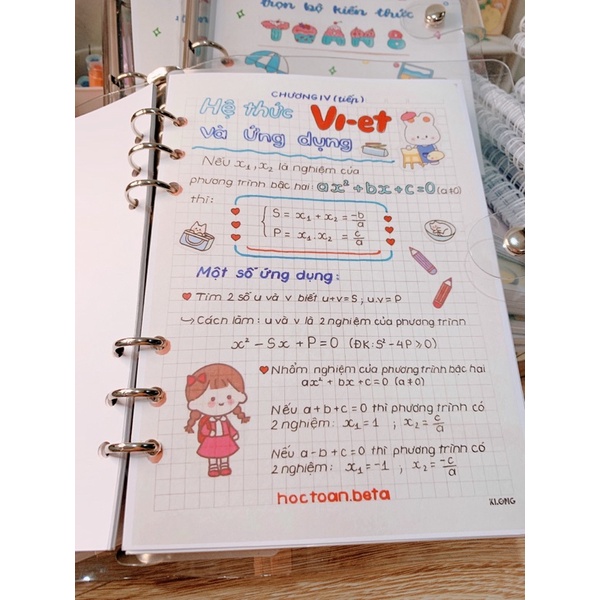 trọn bộ kiến thức
TOÁN 8
CHƯƠNG IV (tiếp)
Hệ thức Vi-et
Và Ứng dụng
Nếu x₁, x₂ là nghiệm của
phương trình bậc hai: ax² + bx + c = 0 (a≠0)
thì:
S = x₁ + x₂ = -b/a
P = x₁. x₂ = c/a
Một số ứng dụng:
Tìm 2 số u và v biết u+v=S; u.v=P
↪ Cách làm: u và v là 2 nghiệm của phương trình
x² - Sx + P = 0 (ĐK: S² - 4P ≥ 0)
Nhẩm nghiệm của phương trình bậc hai
ax² + bx + c = 0 (a≠0)
Nếu a+b+c=0 thì phương trình có
2 nghiệm: x₁ = 1 ; x₂ = c/a
Nếu a-b+c=0 thì phương trình có
2 nghiệm: x₁ = -1 , x₂ = -c/a
hoctoan.beta
KLONG